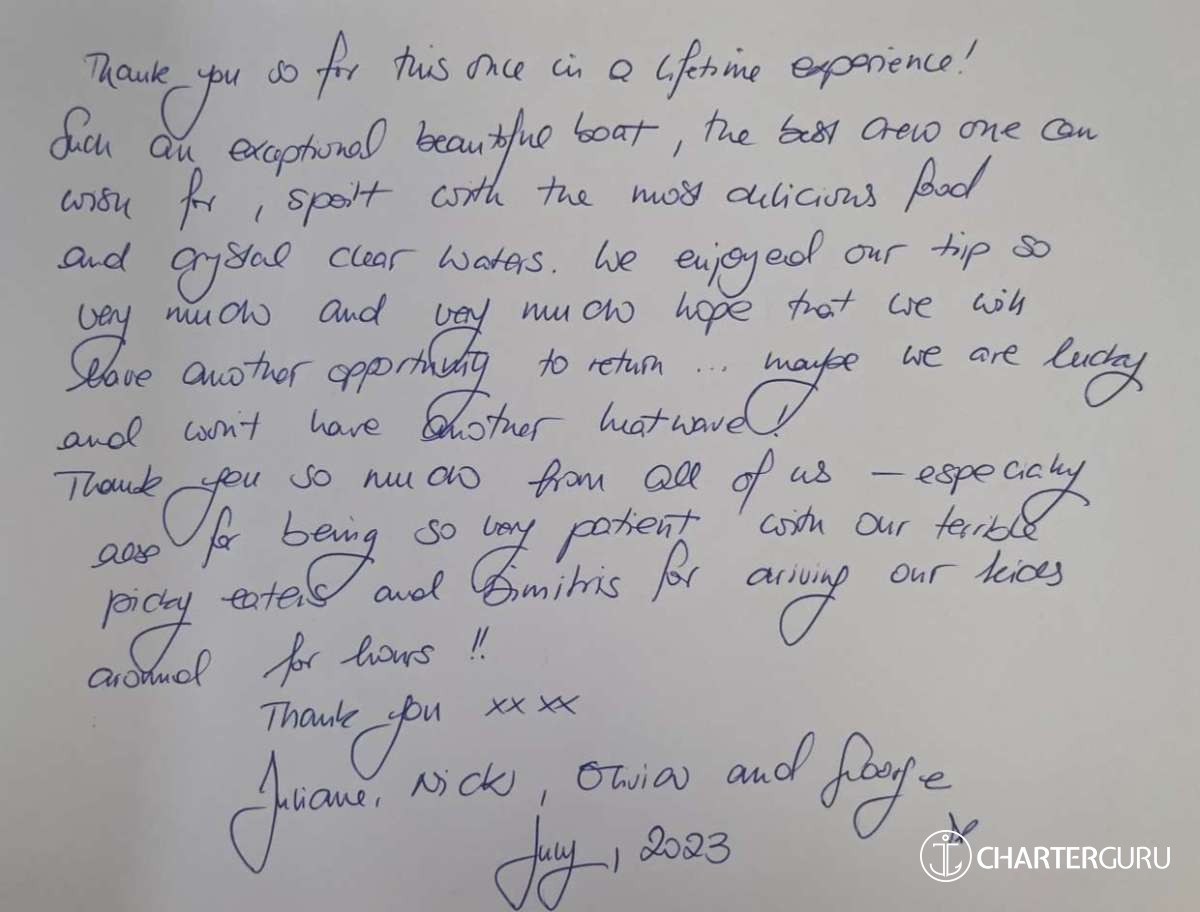 Thank you so for this once in a lifetime experience!
Such an exceptional beautiful boat, the best crew one can
wish for, spoilt with the most delicious food
and crystal clear waters. We enjoyed our tip so
very much and very much hope that we will
have another opportunity to return ... maybe we are lucky
and won't have another heatwave!
Thank you so much from all of us – especially
also for being so very patient with our terrible
picky eaters and Dimitris for driving our kids
around for hours !!
Thank you xx xx
Juliane, Nick, Olivia and George
x
July, 2023
CHARTERGURU